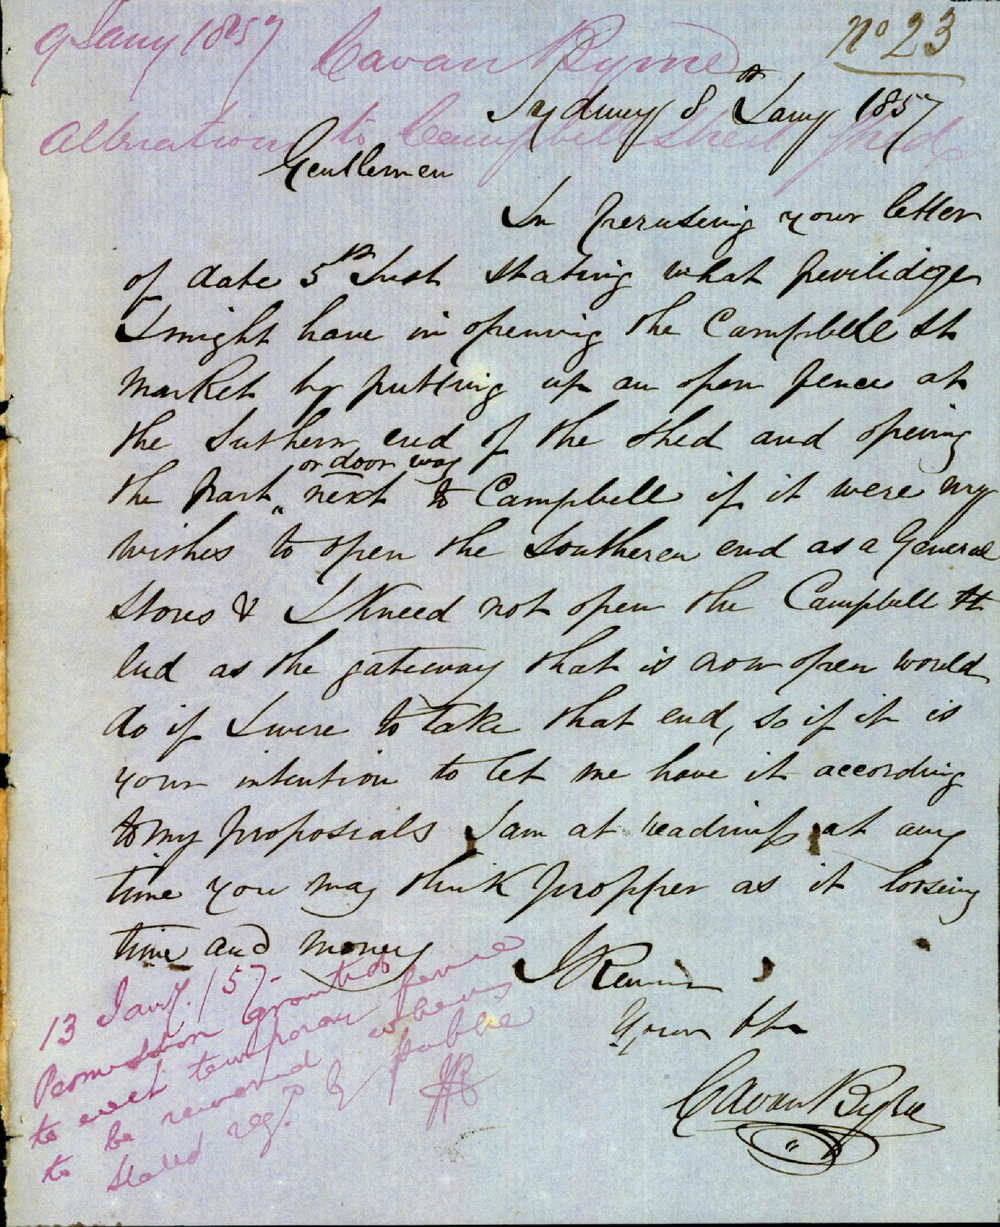 9 Jany 1857 Cavan Byrne
No 23
Alterations to Campbell Shed
Sydney 8th Jany 1857
Gentlemen
In perusing your letter
of date 5th Inst stating what previlidige
I might have in opening the Campbell St
Market by putting up an open fence at
the Suthern end of the shed and opening
the part " or door way next to Campbell if it were my
wishes to open the Southeren end as a General
Stores & I Kneed not open the Campbell St
End as the gateway that is now open would
do if I were to take that end, so if it is
your intention to let me have it according
to my proposials I am at readiness at any
time you may think propper as it loosing
time and money I Remain
Yours &c
Cavan Byrne
13 Jany. / 57 -
Permission granted
to erect temporary fence
to be removed when
stalls reqd. by public